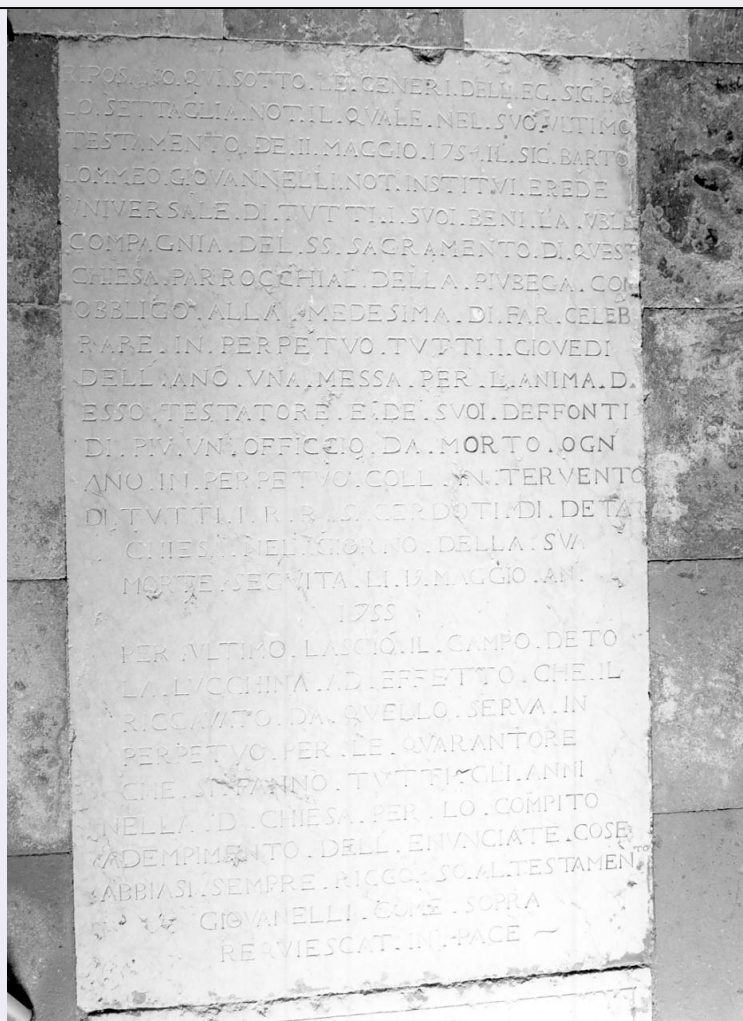 RIPOSANO.QVI.SOTTO.LE.CENERI.DELL.EG.SIG.PAO
LO.SETTAGLIA.NOT.IL.QVALE.NEL.SVO.VLTIMO
TESTAMENTO.DE.II.MAGGIO.1754.IL.SIG.BARTO
LOMMEO.GIOVANNELLI.NOT.INSTITVI.EREDE
VNIVERSALE.DI.TVTTI.I.SVOI.BENI.LA.VBLE
COMPAGNIA.DEL.SS.SACRAMENTO.DI.QVEST
CHIESA.PARROCCHIAL.DELLA.PIVBEGA.CON
OBBLIGO.ALLA.MEDESIMA.DI.FAR.CELEB
RARE.IN.PERPETVO.TVTTI.I.GIOVEDI
DELL.ANO.VNA.MESSA.PER.L.ANIMA.D.
ESSO.TESTATORE.E.DE.SVOI.DEFFONTI
DI.PIV.VN.OFFICZIO.DA.MORTO.OGN
ANO.IN.PERPETVO.COLL.YN.TERVENTO
DI.TVTTI.I.R.R.SACERDOTI.DI.DETA
CHIESA.NEL.GIORNO.DELLA.SVA
MORTE.SEGVITA.LI.19.MAGGIO.AN.
1755
PER.VLTIMO.LASCIO.IL.CAMPO.DETO
LA.LVCCHINA.AD.EFFETTO.CHE.IL
RICCAVATO.DA.QVELLO.SERVA.IN
PERPETVO.PER.LE.QVARANTORE
CHE.SI.FANNO.TVTTI.GLI.ANNI
NELLA.D.CHIESA.PER.LO.COMPITO
ADEMPIMENTO.DELL.ENVNCIATE.COSE
ABBIASI.SEMPRE.RICCORSO.AL.TESTAMENTO
GIOVANELLI.COME.SOPRA
REQVIESCAT.IN.PACE ~